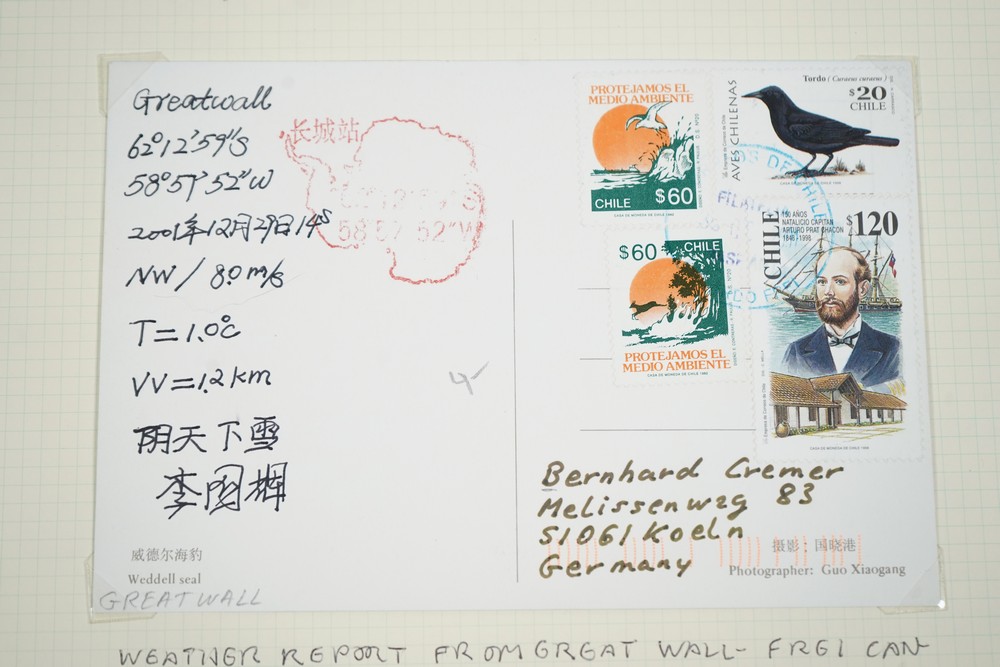 Greatwall
62°12'59"S
58°57'52"W
2001年12月29日14S
NW/8.0m/s
T=1.0°C
VV=1.2km
阴天下雪
李国辉
威德尔海豹
Weddell seal
GREATWALL
长城站
58 57 52"W
PROTEJAMOS EL
MEDIO AMBIENTE
CHILE $60
CASA DE MONEDA DE CHILE
$60 CHILE
PROTEJAMOS EL
MEDIO AMBIENTE
CASA DE MONEDA DE CHILE
Tordo (Curaeus curaeus)
$20
CHILE
AVES CHILENAS
CASA DE MONEDA DE CHILE
CHILE
150 AÑOS
NATALICIO CAPITAN
ARTURO PRAT CHACON
1848-1998
$120
CASA DE MONEDA DE CHILE
OS DE CHILE
FILATELIA
Bernhard Cremer
Melissenweg 83
51061 Koeln
Germany
摄影：国晓港
Photographer: Guo Xiaogang
WEATHER REPORT FROM GREAT WALL- FREI CAN